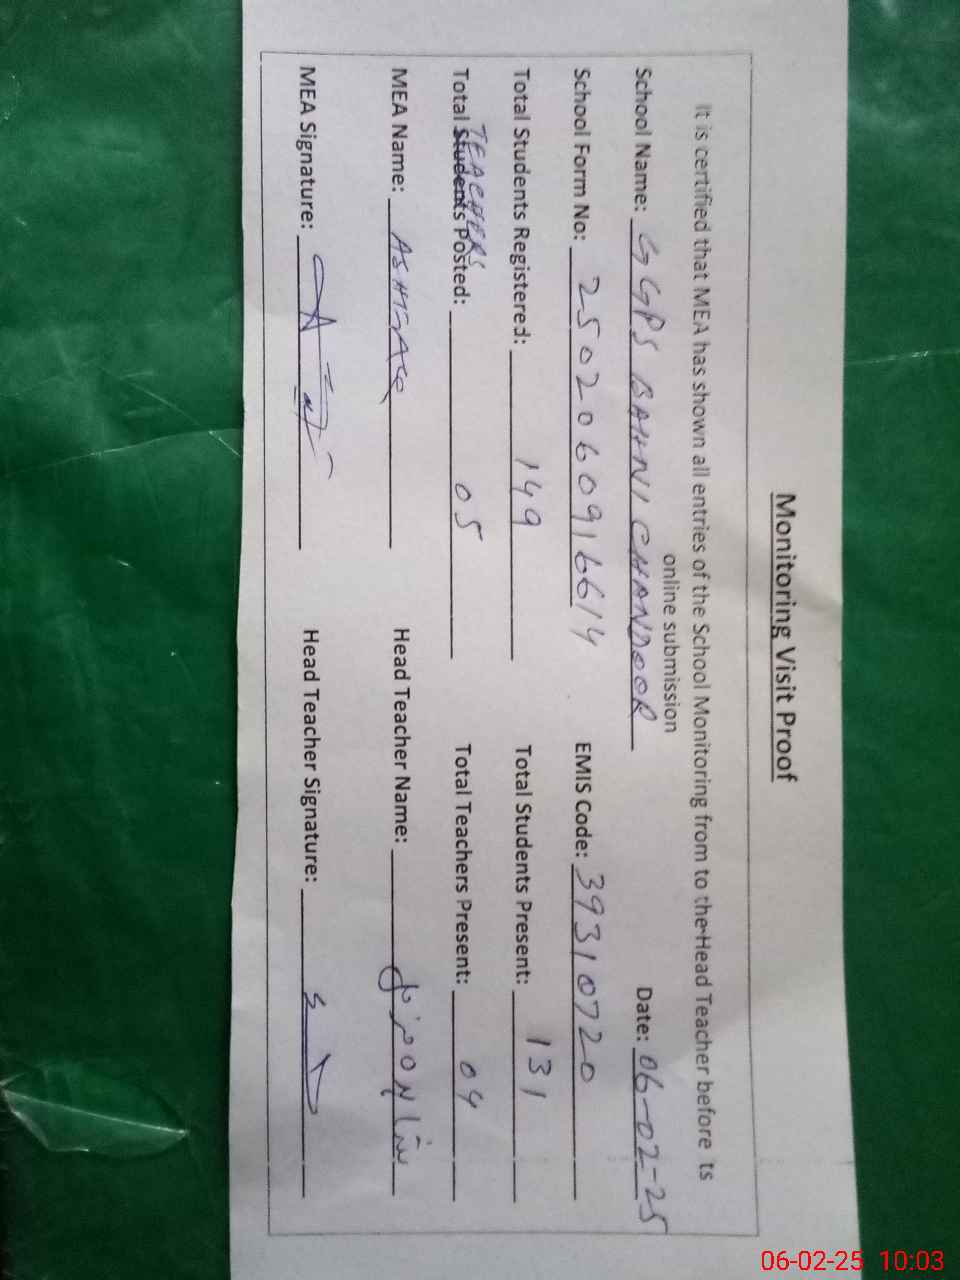 Monitoring Visit Proof
It is certified that MEA has shown all entries of the School Monitoring from to the Head Teacher before ts
online submission
School Name: GGPS BAHNI CHANDOOR Date: 06-02-25
School Form No: 25020609166614 EMIS Code: 39310720
Total Students Registered: 149 Total Students Present: 131
TEACHERS
Total Students Posted: 05 Total Teachers Present: 04
MEA Name: ASHFAQ Head Teacher Name:
MEA Signature: Head Teacher Signature:
06-02-25 10:03